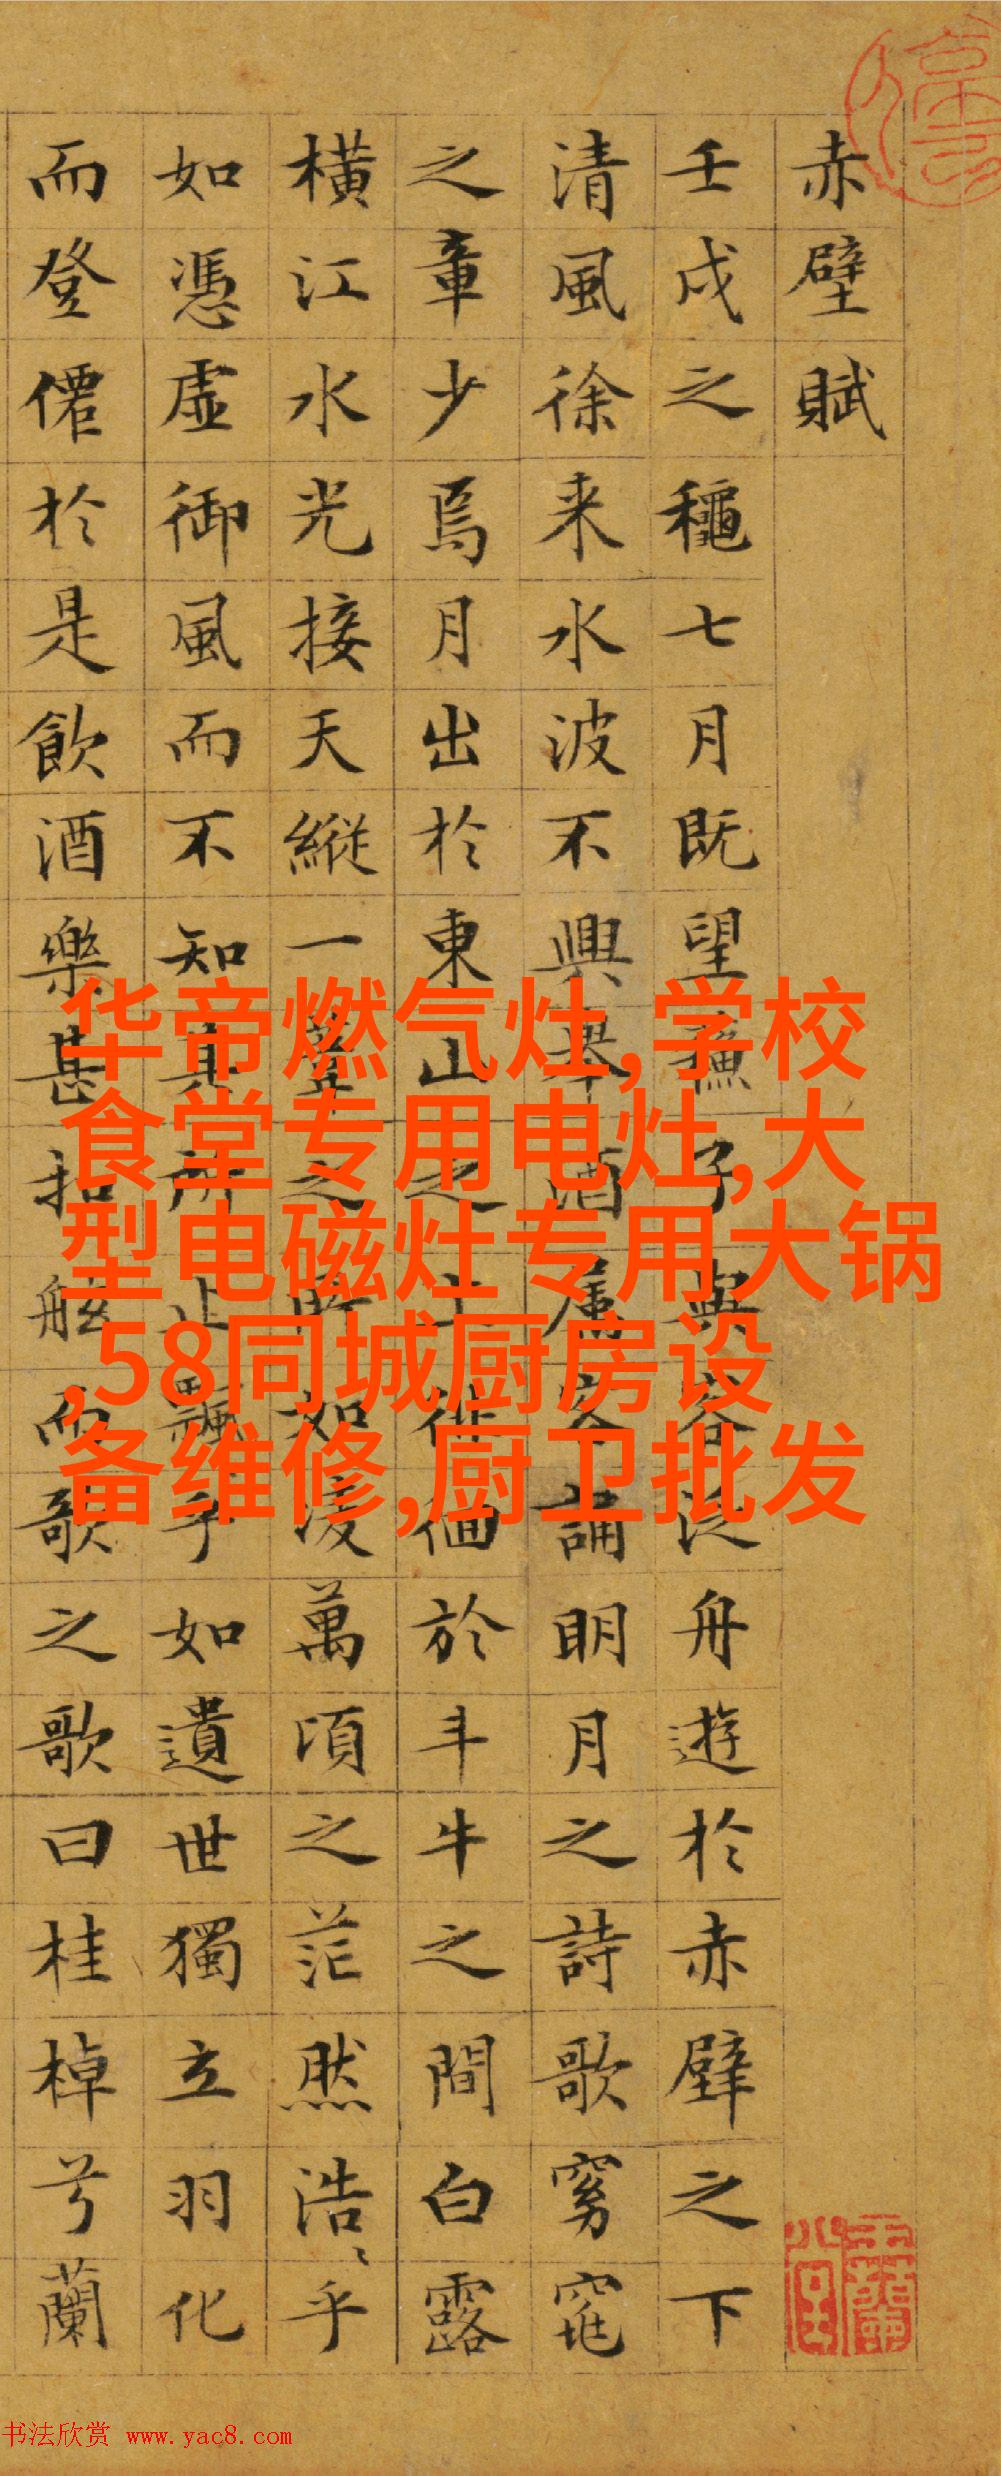 赤壁賦
壬戌之龝七月既望蘓子與客泛舟遊於赤壁之下
清風徐来水波不興舉酒屬客誦明月之詩歌窈窕
之章少焉月出於東山之上徘徊於斗牛之間白露
橫江水光接天縱一葦之所如凌萬頃之茫然浩〻乎
如憑虛御風而不知其所止飄乎如遺世獨立羽化
而登僊於是飲酒樂甚扣舷而歌之歌曰桂棹兮蘭
华帝燃气灶,学校
食堂专用电灶,大
型电磁灶专用大锅
,58同城厨房设
备维修,厨卫批发
书法欣赏 www.yac8.com